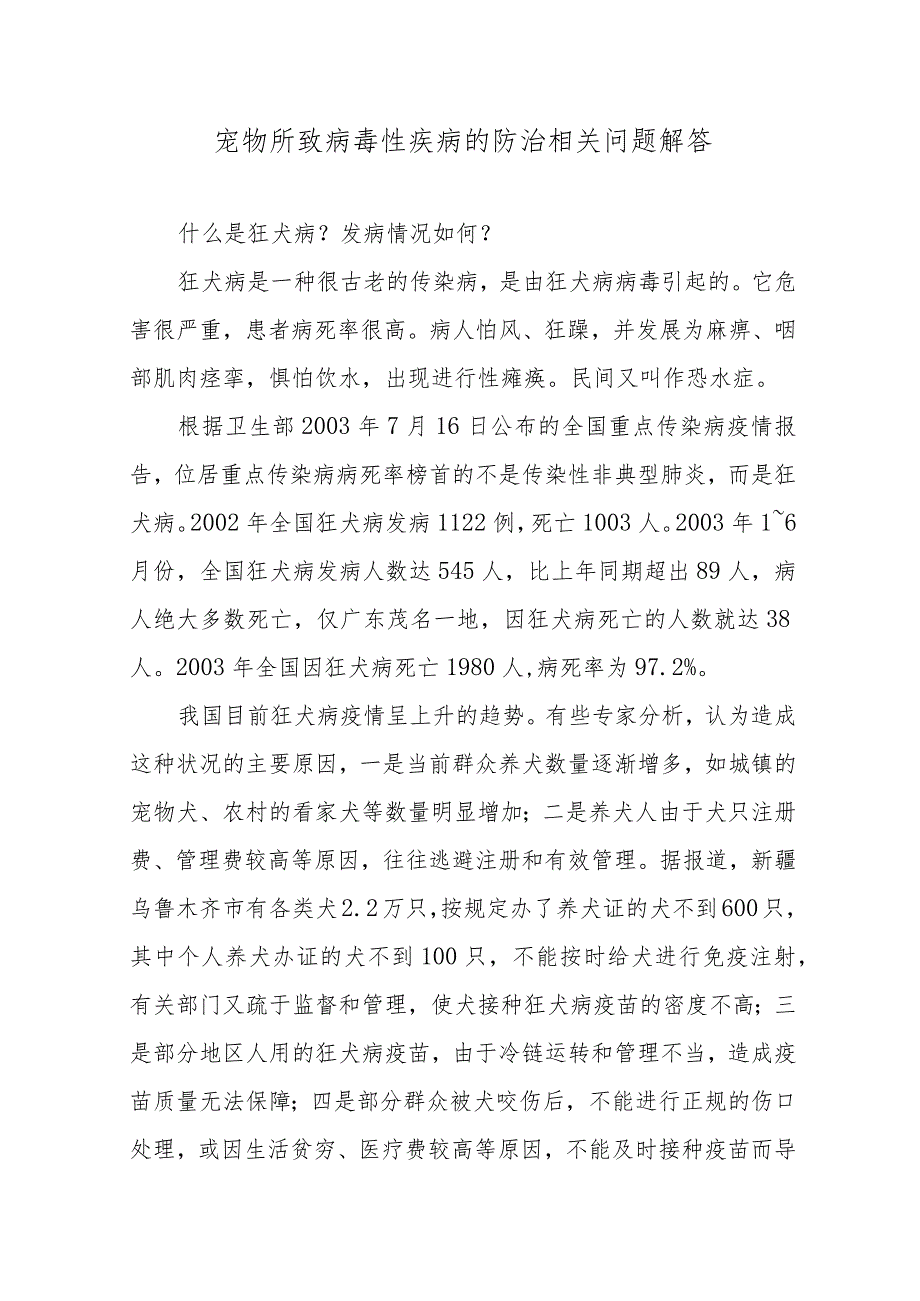 宠物所致病毒性疾病的防治相关问题解答
什么是狂犬病？发病情况如何？
狂犬病是一种很古老的传染病，是由狂犬病病毒引起的。它危
害很严重，患者病死率很高。病人怕风、狂躁，并发展为麻痹、咽
部肌肉痉挛，惧怕饮水，出现进行性瘫痪。民间又叫作恐水症。
根据卫生部2003年7月16日公布的全国重点传染病疫情报
告，位居重点传染病病死率榜首的不是传染性非典型肺炎，而是狂
犬病。2002年全国狂犬病发病1122例,死亡1003人。2003年1~6
月份，全国狂犬病发病人数达545人，比上年同期超出89人，病
人绝大多数死亡，仅广东茂名一地，因狂犬病死亡的人数就达38
人。2003年全国因狂犬病死亡1980人,病死率为97.2%。
我国目前狂犬病疫情呈上升的趋势。有些专家分析，认为造成
这种状况的主要原因，一是当前群众养犬数量逐渐增多，如城镇的
宠物犬、农村的看家犬等数量明显增加；二是养犬人由于犬只注册
费、管理费较高等原因，往往逃避注册和有效管理。据报道，新疆
乌鲁木齐市有各类犬2.2万只,按规定办了养犬证的犬不到600只，
其中个人养犬办证的犬不到100只，不能按时给犬进行免疫注射，
有关部门又疏于监督和管理，使犬接种狂犬病疫苗的密度不高；三
是部分地区人用的狂犬病疫苗，由于冷链运转和管理不当，造成疫
苗质量无法保障；四是部分群众被犬咬伤后，不能进行正规的伤口
处理，或因生活贫穷、医疗费较高等原因，不能及时接种疫苗而导